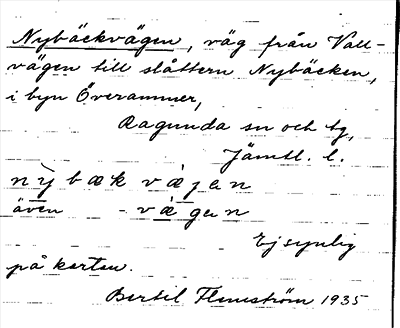 Nybäckvägen, väg från Vall-
vägen till slåttern Nybäcken,
i byn Överammer,
Ragunda sn och tg,
Jämtl. l.
nỳbæk væ̀jen
även - væ̀gen
Ej synlig
på kartan.
Bertil Flemström 1935